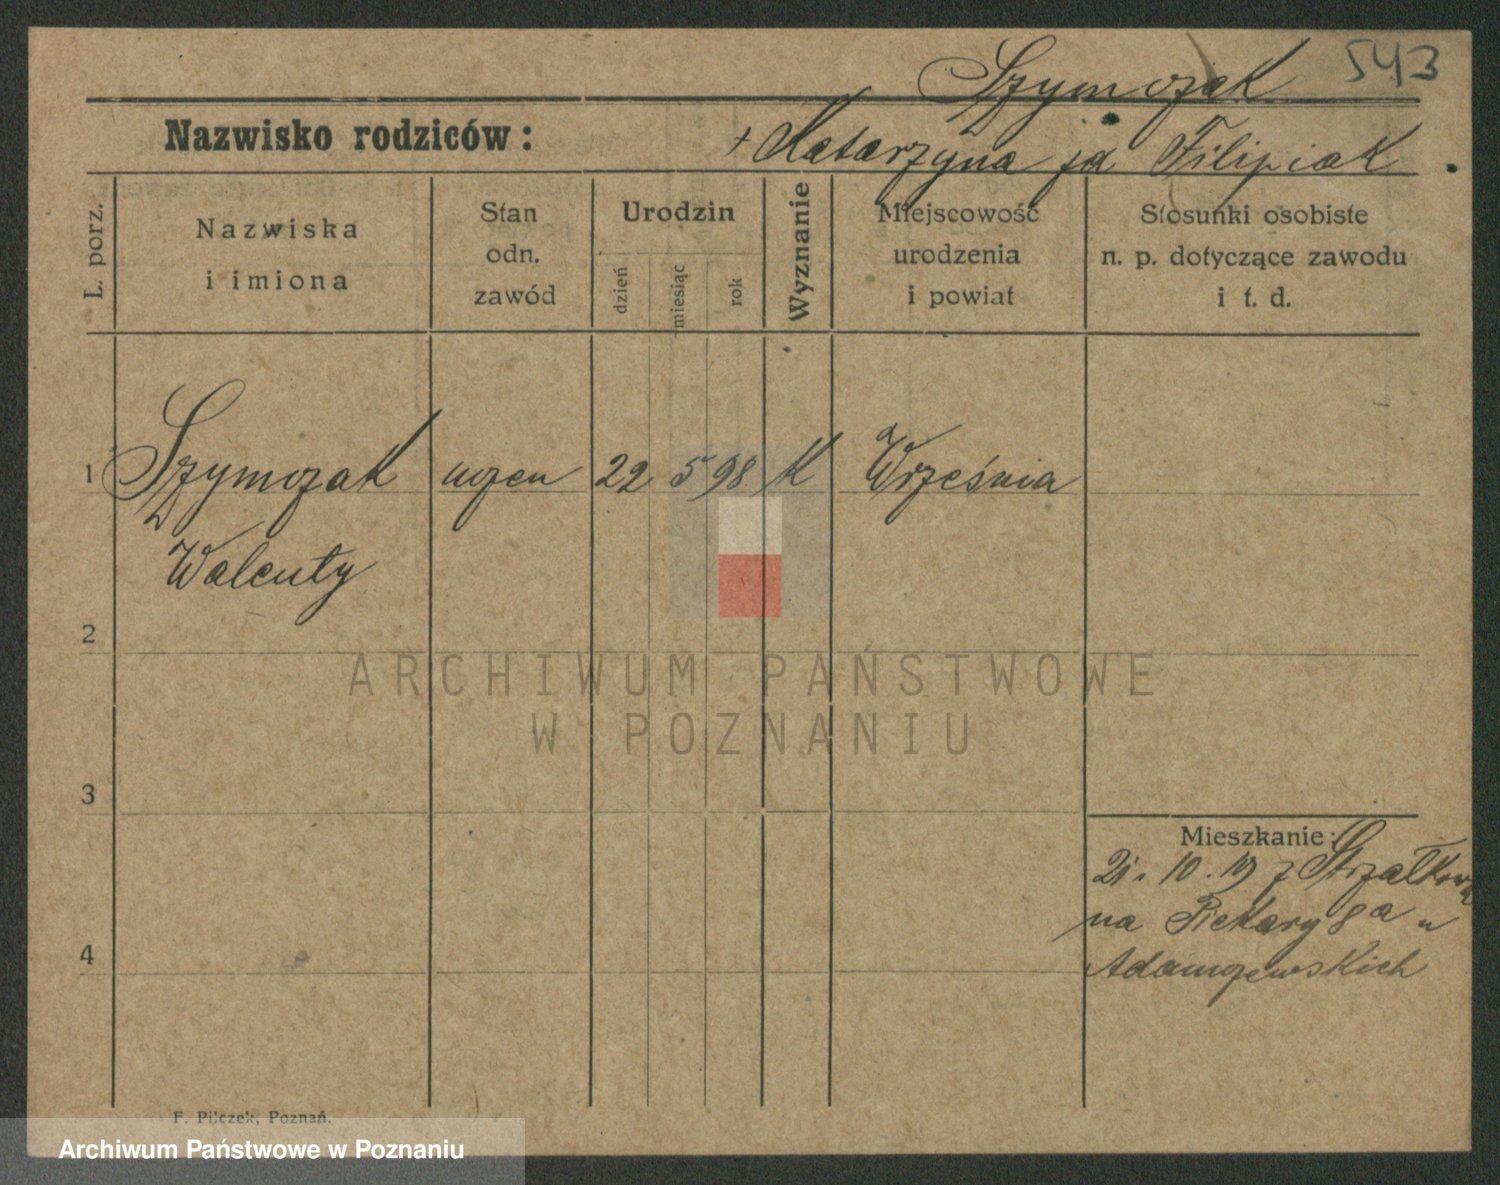 543
Szymczak
Nazwisko rodziców:
+ Katarzyna za Filipiak
L. porz.
Nazwiska
i imiona
Stan
odn.
zawód
Urodzin
dzień
miesiąc
rok
Wyznanie
Miejscowość
urodzenia
i powiat
Stosunki osobiste
n. p. dotyczące zawodu
i t. d.
1 Szymczak uczen 22 5 98 K Września
Walenty
2
ARCHIWUM PAŃSTWOWE
W POZNANIU
3
Mieszkanie:
21. 10. 19 z Strzałkowa
na Piekary 8a u
4
Adamczewskich
F. Pilczek, Poznań.
Archiwum Państwowe w Poznaniu